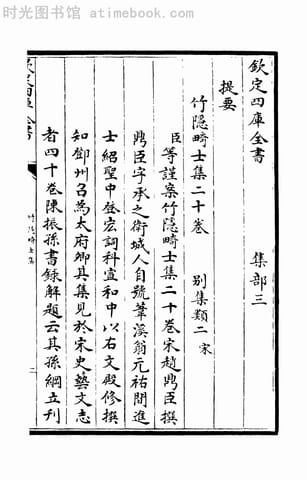 时光图书馆 atimebook.com
欽定四庫全書 集部三
提要
竹隱畸士集二十卷 别集類二 宋
臣等謹案竹隱畸士集二十卷宋趙鼎臣撰
鼎臣字承之衛城人自號葦溪翁元祐間進
士紹聖中登宏詞科宣和中以右文殿修撰
知鄧州召為太府卿其集見於宋史藝文志
者四十卷陳振孫書録解題云其孫綱立刊
竹隱畸士集